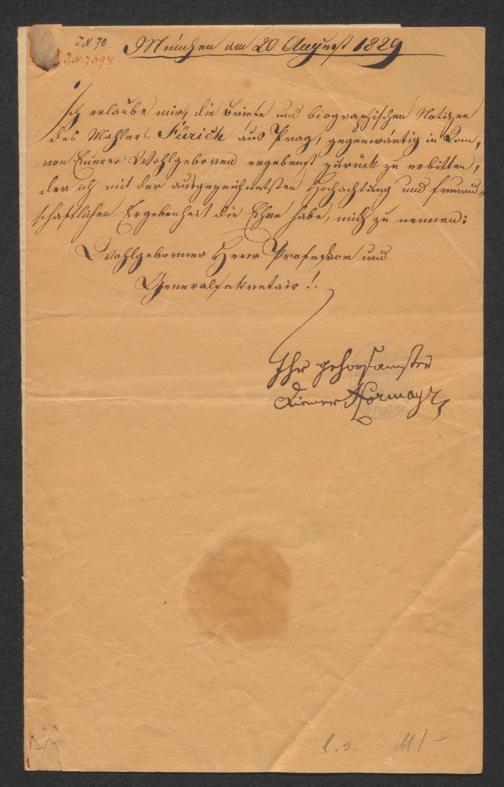 J.N. 70
J.N. 7094
München am 20 August 1829
Ich erlaube mir, die Briefe und biographischen Notizen
des Mahlers Fürich aus Prag, gegenwärtig in Rom,
von Euerer Wohlgeboren ergebenst zurück zu erbitten,
der ich mit der ausgezeichnetsten Hochachtung und freund-
schaftlichen Ergebenheit die Ehre habe, mich zu nennen:
Wohlgeborner Herr Professor und
Generalsekretair!.
Ihr gehorsamster
Diener Hormayr
l. s.